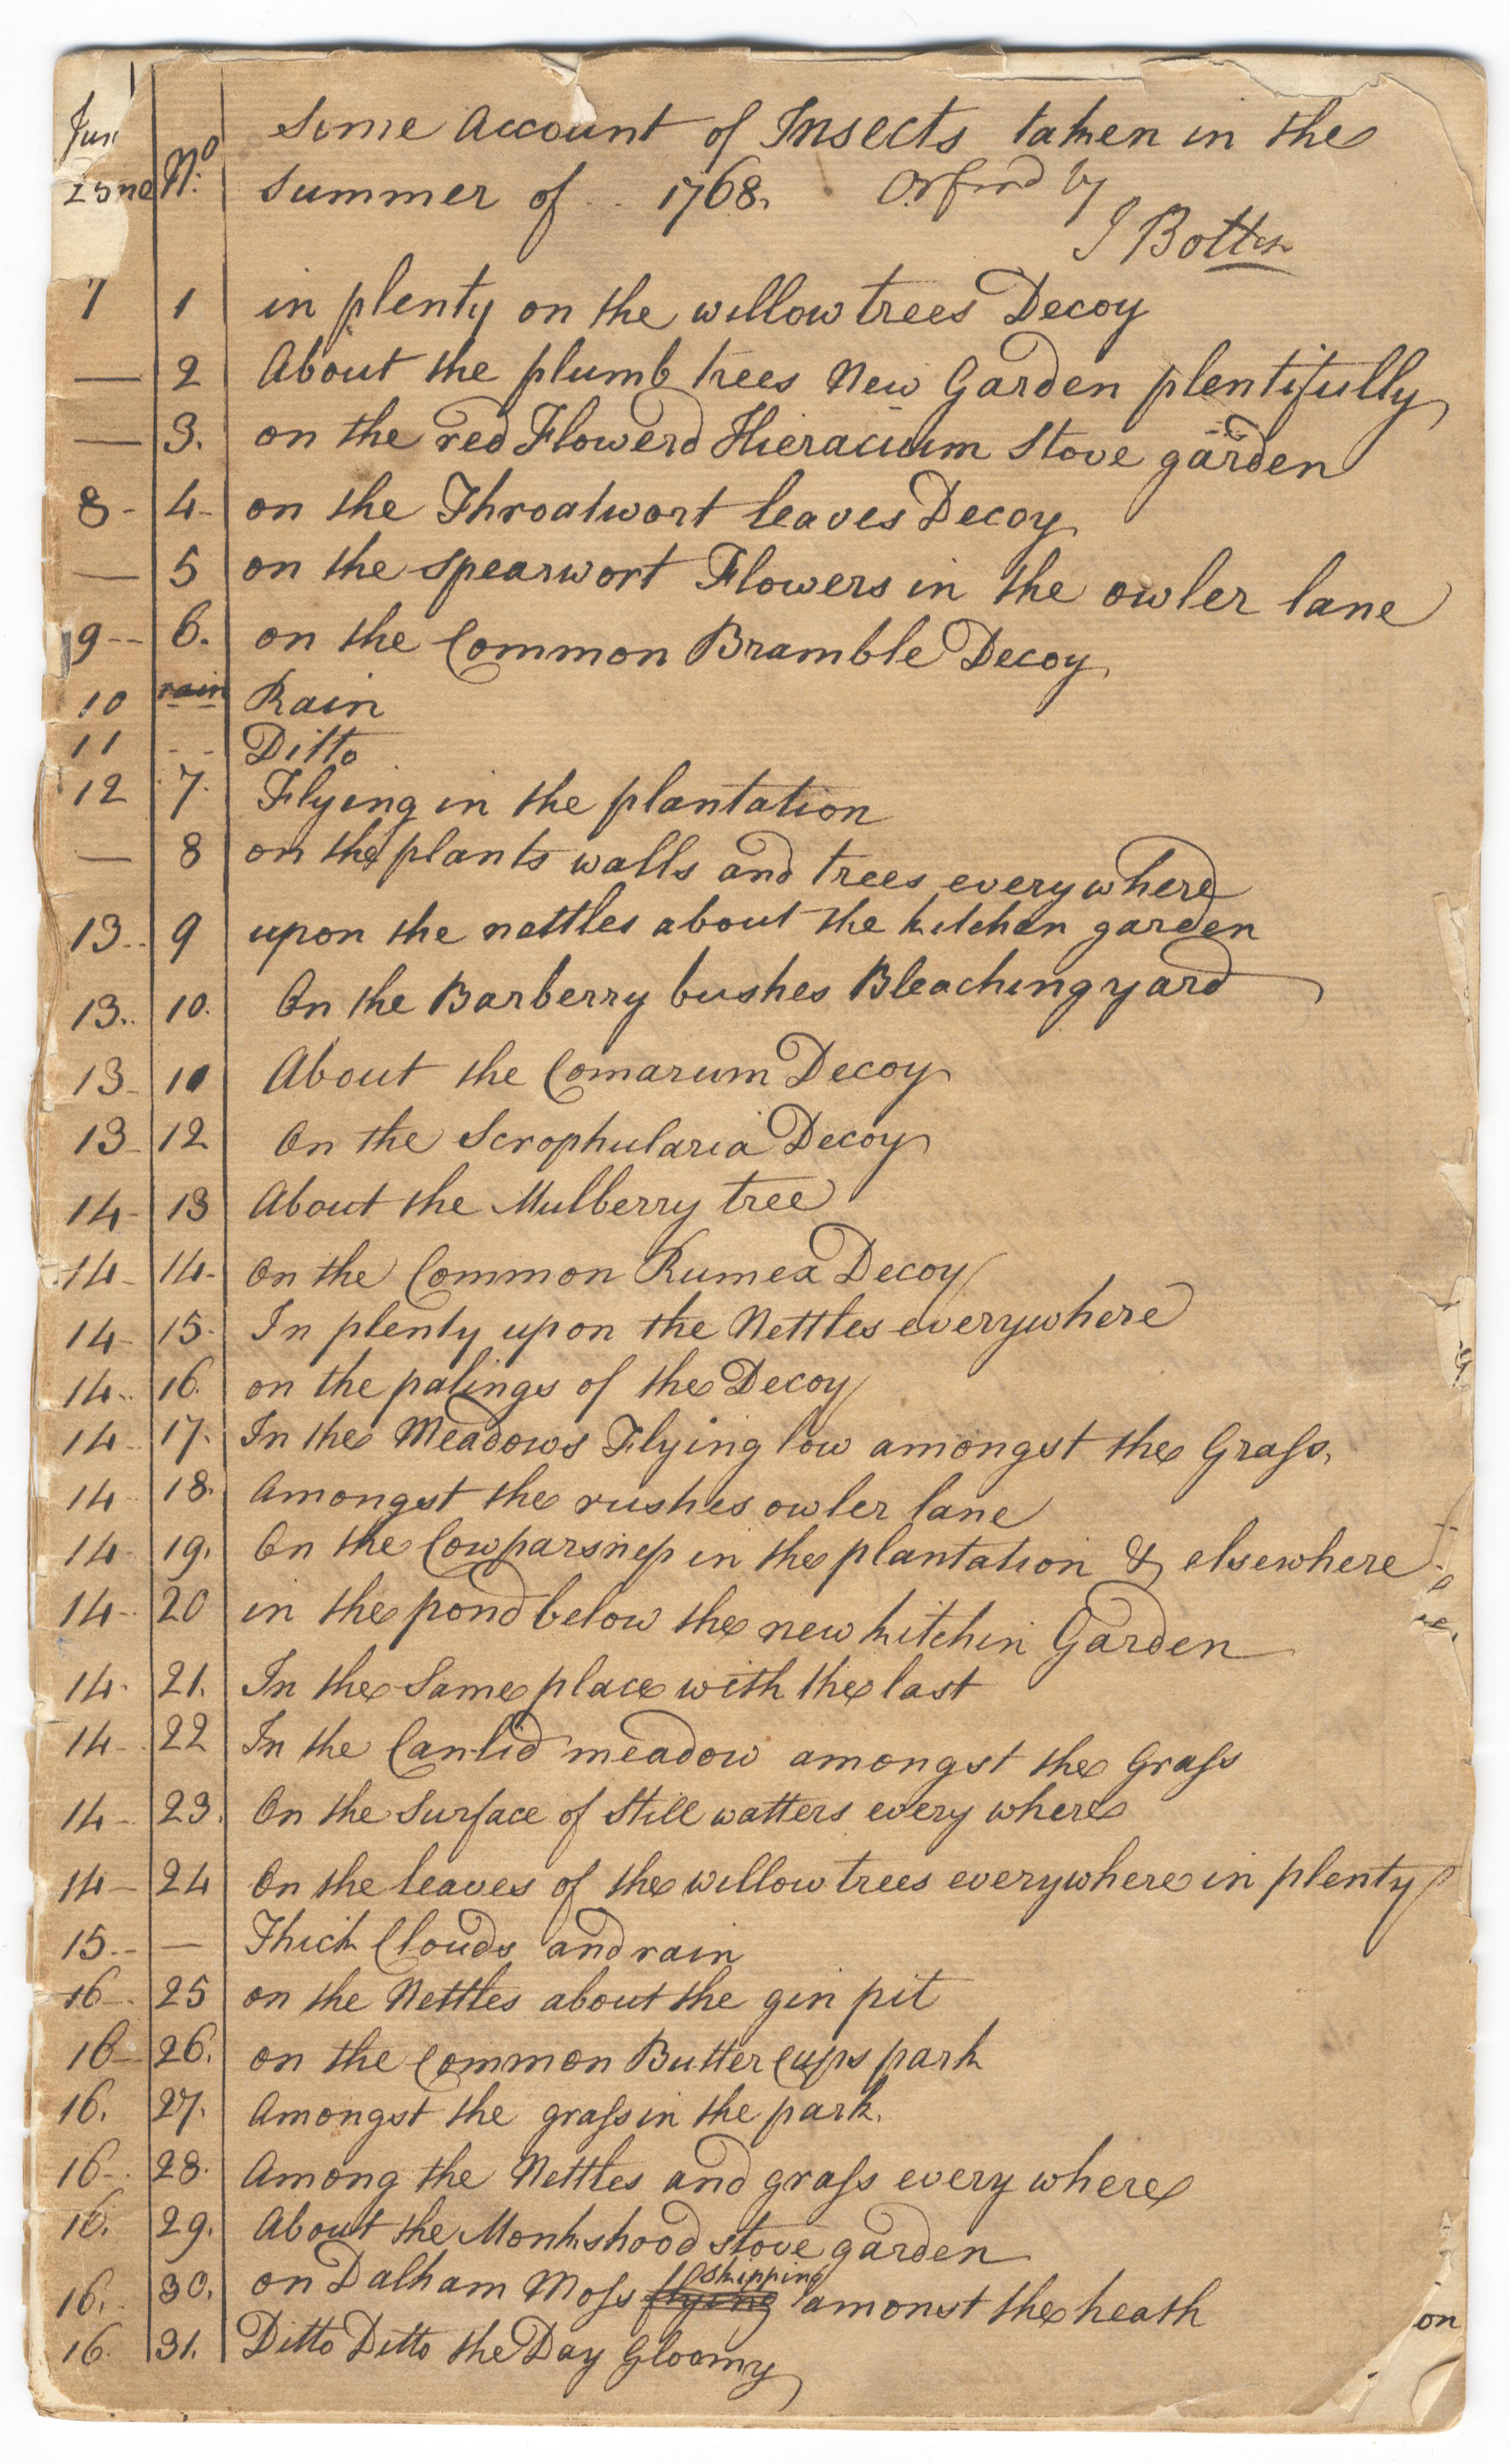 Jun Some Account of Insects taken in the
No Summer of 1768. Orford by
J Bolton
7 1 in plenty on the willow trees Decoy
— 2 About the plumb trees New Garden plentifully
— 3. on the red Flowerd Hieracium Stove garden
8 - 4 - on the Throatwort leaves Decoy
— 5 on the spearwort Flowers in the owler lane
9 -- 6. on the Common Bramble Decoy
10 rain Rain
11 - - Ditto
12 7. Flying in the plantation
— 8 on the plants walls and trees everywhere
13.. 9 upon the nettles about the kitchen garden
13.. 10. On the Barberry bushes Bleaching yard
13 - 11 About the Comarum Decoy
13 - 12 On the Scrophularia Decoy
14 - 13 About the Mulberry tree
14 - 14 - On the Common Rumex Decoy
14 - 15 - In plenty upon the Nettles everywhere
14.. 16. on the palings of the Decoy
14 - 17. In the Meadows Flying low amongst the Grass,
14 - 18. Amongst the rushes owler lane
14 - 19. On the Cowparsnep in the plantation & elsewhere
14 -. 20 in the pond below the new kitchin Garden
14 - 21. In the Same place with the last
14 -. 22 In the Can-lid meadow amongst the Grass
14 - 23. On the Surface of Still watters every where
14 - 24 On the leaves of the willow trees everywhere in plenty
15.- — Thick Clouds and rain
16 -. 25 on the Nettles about the gin pit
16 - 26. on the Common Butter Cups park
16. 27. Amongst the grass in the park.
16 -. 28. Among the Nettles and grass every where
16. 29. About the Monkshood stove garden
16.. 30. on Dalham Moss flying skipping amonst the heath
16. 31. Ditto Ditto the Day Gloomy
on